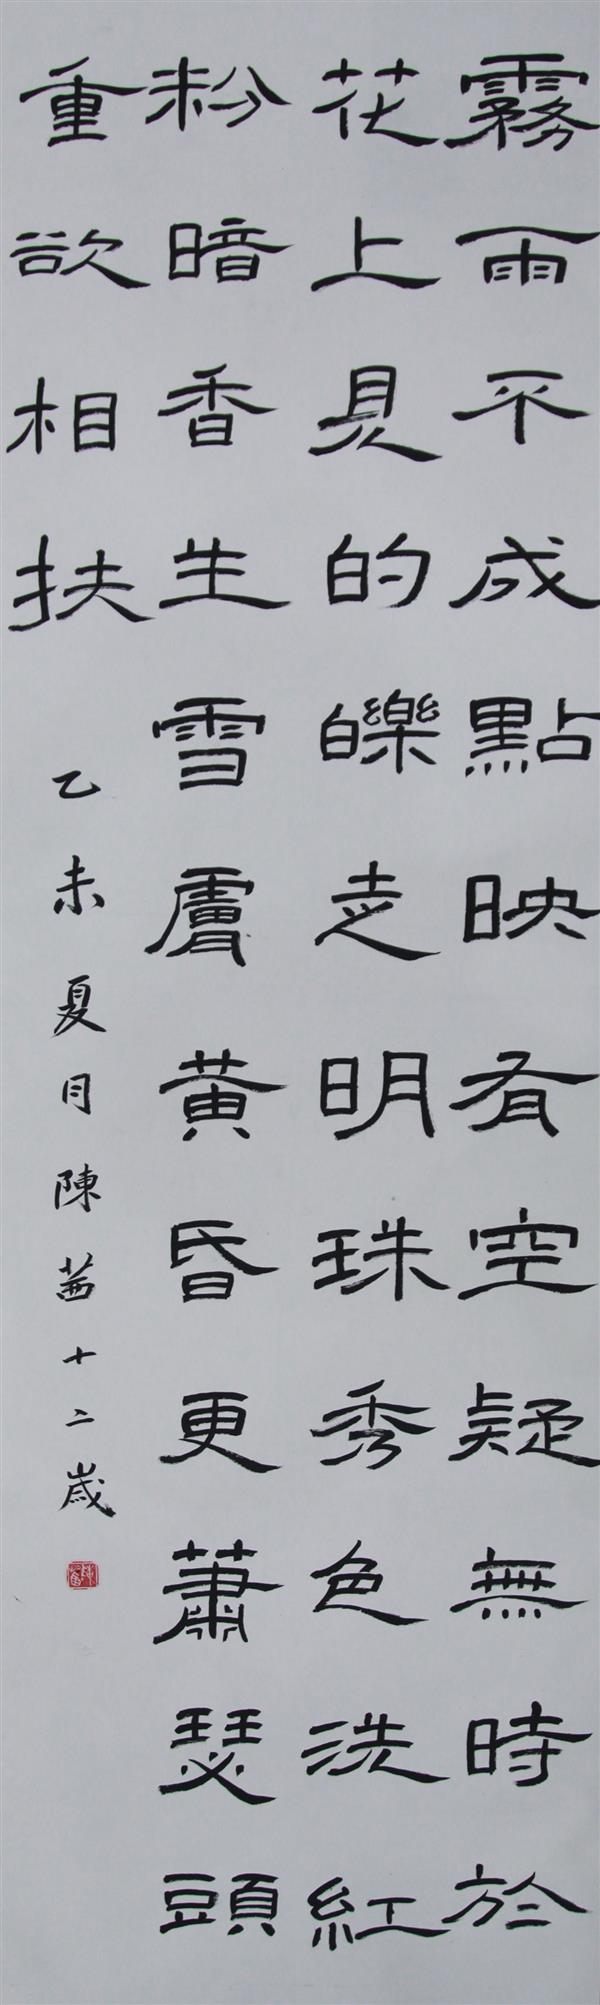 霧雨不成點映有空疑無時於
花上見的皪走明珠秀色洗紅
粉暗香生雪膚黄昏更蕭瑟頭
重欲相扶
乙未夏月陳茜十二歲